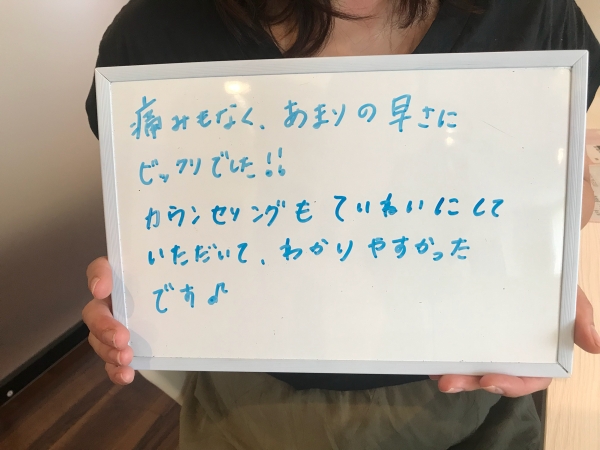 痛みもなく、あまりの早さに
ビックリでした!!
カウンセリングもていねいにして
いただいて、わかりやすかった
です♪